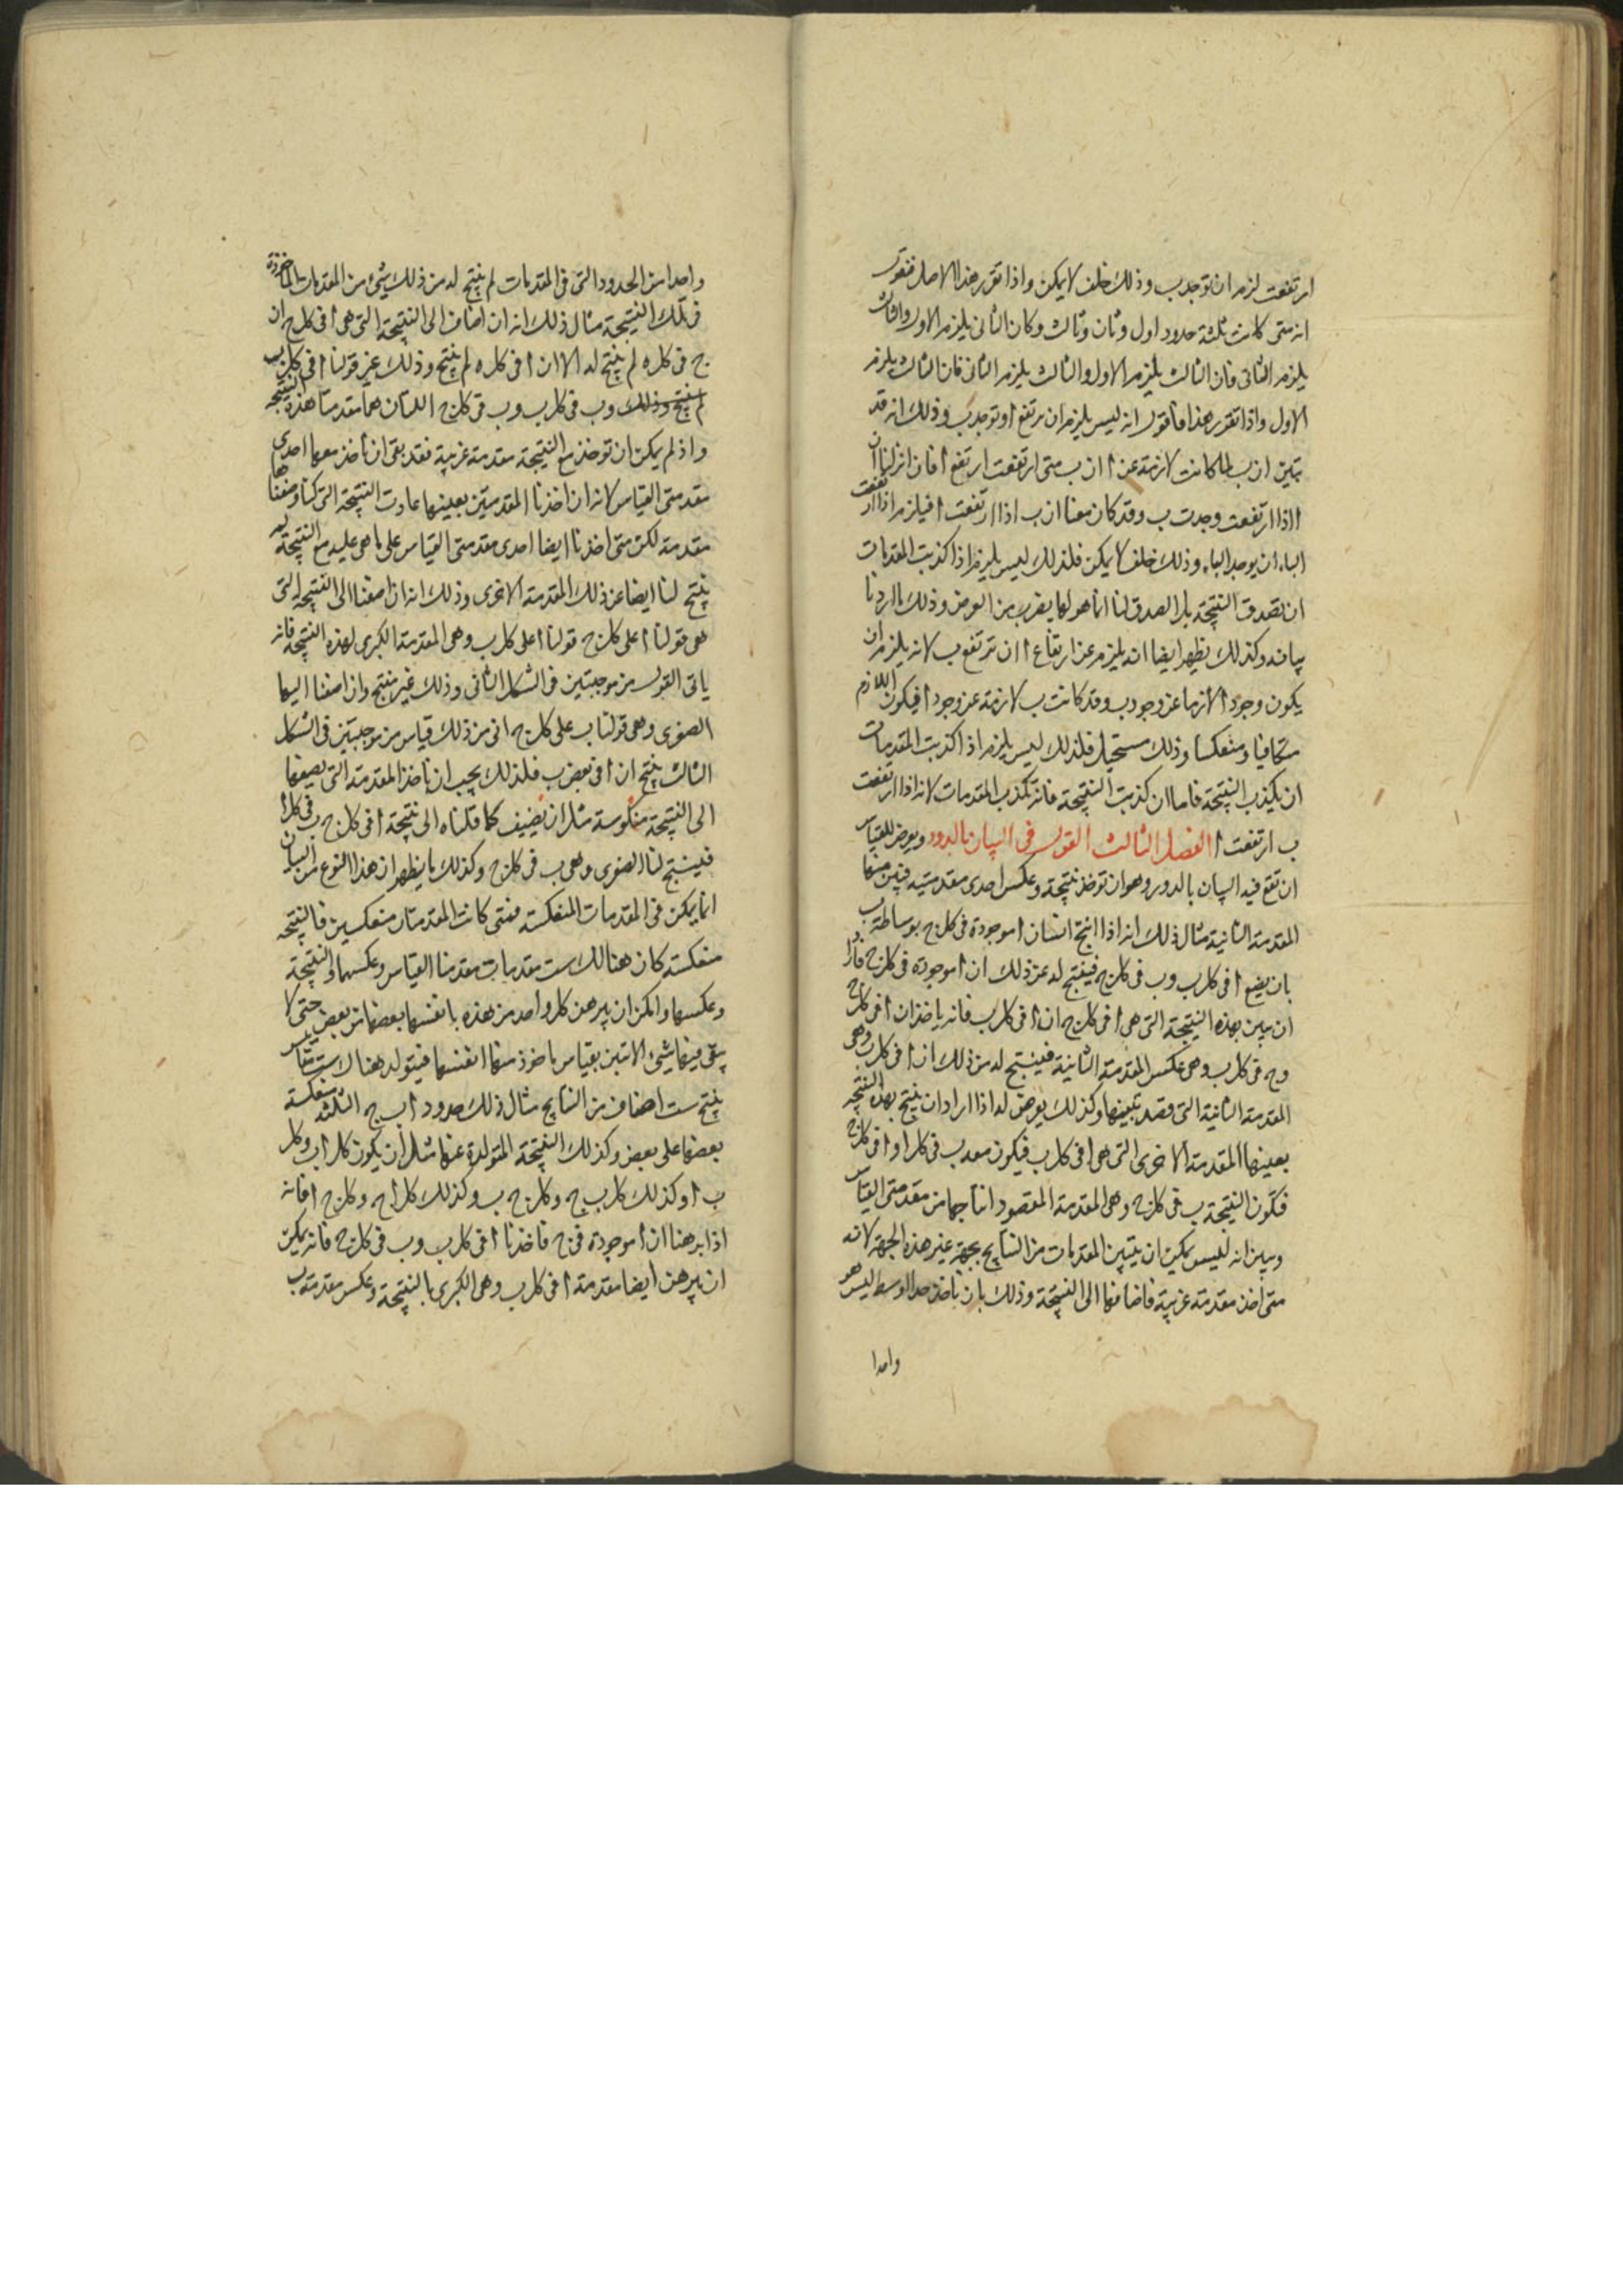 ارتفعت لزم ان توجد ب وذلك خلف لا يمكن واذا تقرر هذا الاصل فنقول
انه متى كانت ثلثة حدود اول وثان وثالث وكان الثانى يلزم الاول والثالث
يلزم الثانى فان الثالث يلزم الاول والثالث يلزم الثانى فان الثالث يلزم
الاول واذا تقرر هذا فاقول انه ليس يلزم ان يرتفع ا وتوجد ب وذلك انه قد
تبين ان ب لما كانت لازمة عن ا ان ب متى ارتفعت ارتفع ا فان انزلنا ان
ا اذا ارتفعت وجدت ب وقد كان معنا ان ب اذا ارتفعت ا فيلزم اذا ارتفعت
الباء ان يوجد الباء وذلك خلف لا يمكن فلذلك ليس يلزم اذا كذبت المقدمات
ان تصدق النتيجة بل الصدق لنا انما هو لها بضرب من العرض وذلك ما اردنا
بيانه وكذلك يظهر ايضا انه يلزم عن ارتفاع ا ان ترتفع ب لانه يلزم ان
يكون وجود ا لازما عن وجود ب وقد كانت ب لازمة عن وجود ا فيكون اللازم
متكافيا ومنعكسا وذلك مستحيل فلذلك ليس يلزم اذا كذبت المقدمات
ان يكذب النتيجة فاما ان كذبت النتيجة فانه تكذب المقدمات لانه اذا ارتفعت
ب ارتفعت ا الفصل الثالث القول فى البيان بالدور ويعرض للقياس
ان تقع فيه البيان بالدور وهو ان توخذ نتيجة وعكس احدى مقدمتيه فيبين منها
المقدمة الثانية مثال ذلك انه اذا انتج انسان ا موجودة فى كل ج بوساطة ب
بان يضع ا فى كل ب وب فى كل ج فينتج له عن ذلك ان ا موجودة فى كل ج فاراد
ان يبين بهذه النتيجة التى هى ا فى كل ج ان ا فى كل ب فانه ياخذ ان ا فى كل ج
وج فى كل ب وهى عكس المقدمة الثانية فينتج له من ذلك ان ا فى كل ب وهى
المقدمة الثانية التى قصد تبيينها وكذلك يعرض له اذا اراد ان ينتج بهذه النتيجة
بعينها المقدمة الاخرى التى هى ا فى كل ب فيكون معه ب فى كل ا وا فى كل ج
فتكون النتيجة ب فى كل ج وهى المقدمة المقصود انتاجها من مقدمتى القياس
وبين انه ليس يمكن ان يتبين المقدمات من النتايج بجهة غير هذه الجهة لانه
متى اخذ مقدمة غريبة فاضافها الى النتيجة وذلك بان ياخذ حد الوسط ليس هو
واحدا
واحدا من الحدود التى فى المقدمات لم ينتج له من ذلك شئ من المقدمات الماخوذة
فى تلك النتيجة مثال ذلك انه ان اضاف الى النتيجة التى هى ا فى كل ج ان
ج فى كل ه لم ينتج له الا ان ا فى كل ه لم ينتج وذلك غير قولنا ا فى كل ب
لم ينتج وذلك وب فى كل ب وب فى كل ج اللتان هما مقدمتا هذه النتيجة
واذ لم يمكن ان توخذ مع النتيجة مقدمة غريبة فقد بقى ان ناخذ معها احدى
مقدمتى القياس لانه ان اخذنا المقدمتين بعينهما عادت النتيجة التى كنا وضعناها
مقدمة لكن متى اخذنا ايضا احدى مقدمتى القياس على ما هى عليه مع النتيجة لم
ينتج لنا ايضا عن ذلك المقدمة الاخرى وذلك انه ان اضفنا الى النتيجة التى
هى قولنا ا على كل ج قولنا ا على كل ب وهى المقدمة الكبرى لهذه النتيجة فانه
ياتى القول من موجبتين فى الشكل الثانى وذلك غير منتج وان اضفنا اليها
الصغرى وهى قولنا ب على كل ج اتى من ذلك قياس من موجبتين فى الشكل
الثالث ينتج ان ا فى بعض ب فلذلك يجب ان ناخذ المقدمة التى نضيفها
الى النتيجة منكوسة مثل ان نضيف كما قلناه الى نتيجة ا فى كل ج ب فى كل ا
فينتج لنا الصغرى وهى ب فى كل ج وكذلك ما يظهر ان هذا النوع من البيان
انما يمكن فى المقدمات المنعكسة فمتى كانت المقدمتان منعكسين فالنتيجة
منعكسة كان هنالك ست مقدمات مقدمتا القياس وعكسهما والنتيجة
وعكسها وامكن ان يبرهن كل واحد من هذه بانفسها بعضها من بعض حتى لا
يبقى فيها شئ الا تبين بقياس ماخوذ منها انفسها فيتولد هناك ست مقاييس
ينتج ست اصناف من النتايج مثال ذلك حدود ا ب ج الثلثة منعكسة
بعضها على بعض وكذلك النتيجة المتولدة عنها مثل ان يكون كل ا ب وكل
ب ا وكذلك كل ب ج وكل ج ب وكذلك كل ا ج وكل ج ا فانه
اذا برهنا ان ا موجودة فى ج فاخذنا ا فى كل ب وب فى كل ج فانه يمكن
ان يبرهن ايضا مقدمة ا فى كل ب وهى الكبرى بالنتيجة وعكس مقدمة ب